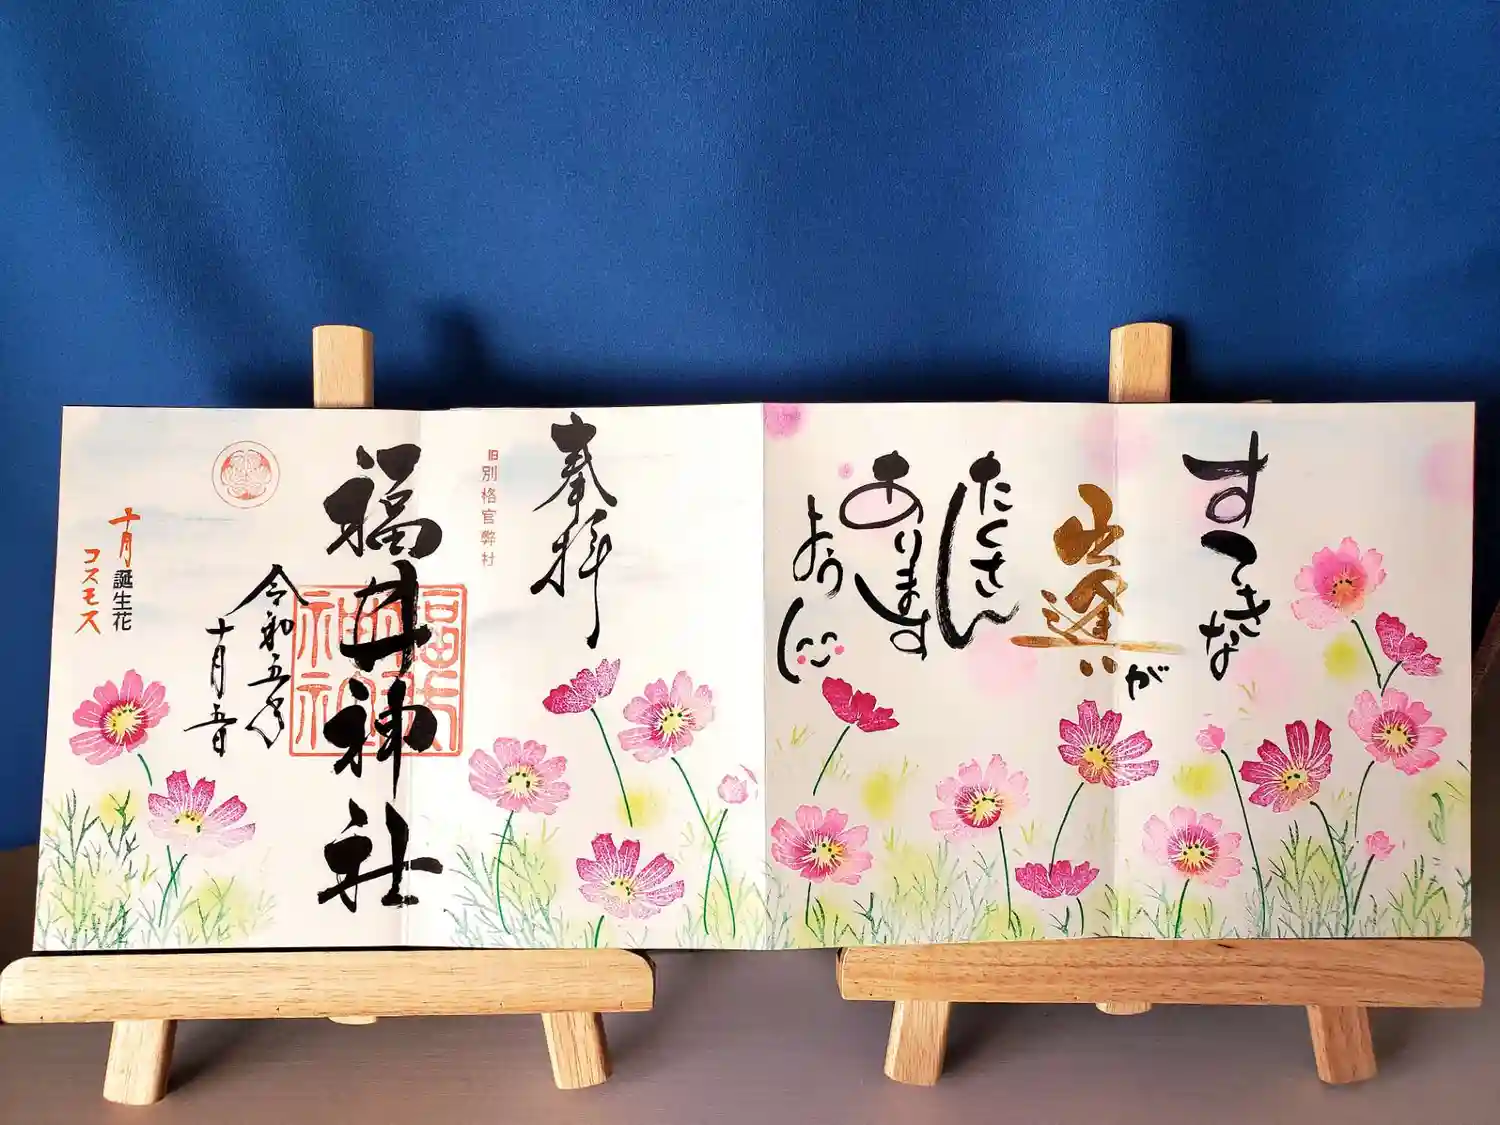 すてきな
出逢いが
たくさん
あります
ように
奉拝
旧別格官幣社
福井神社
福井神社
令和五年
十月五日
十月誕生花
コスモス